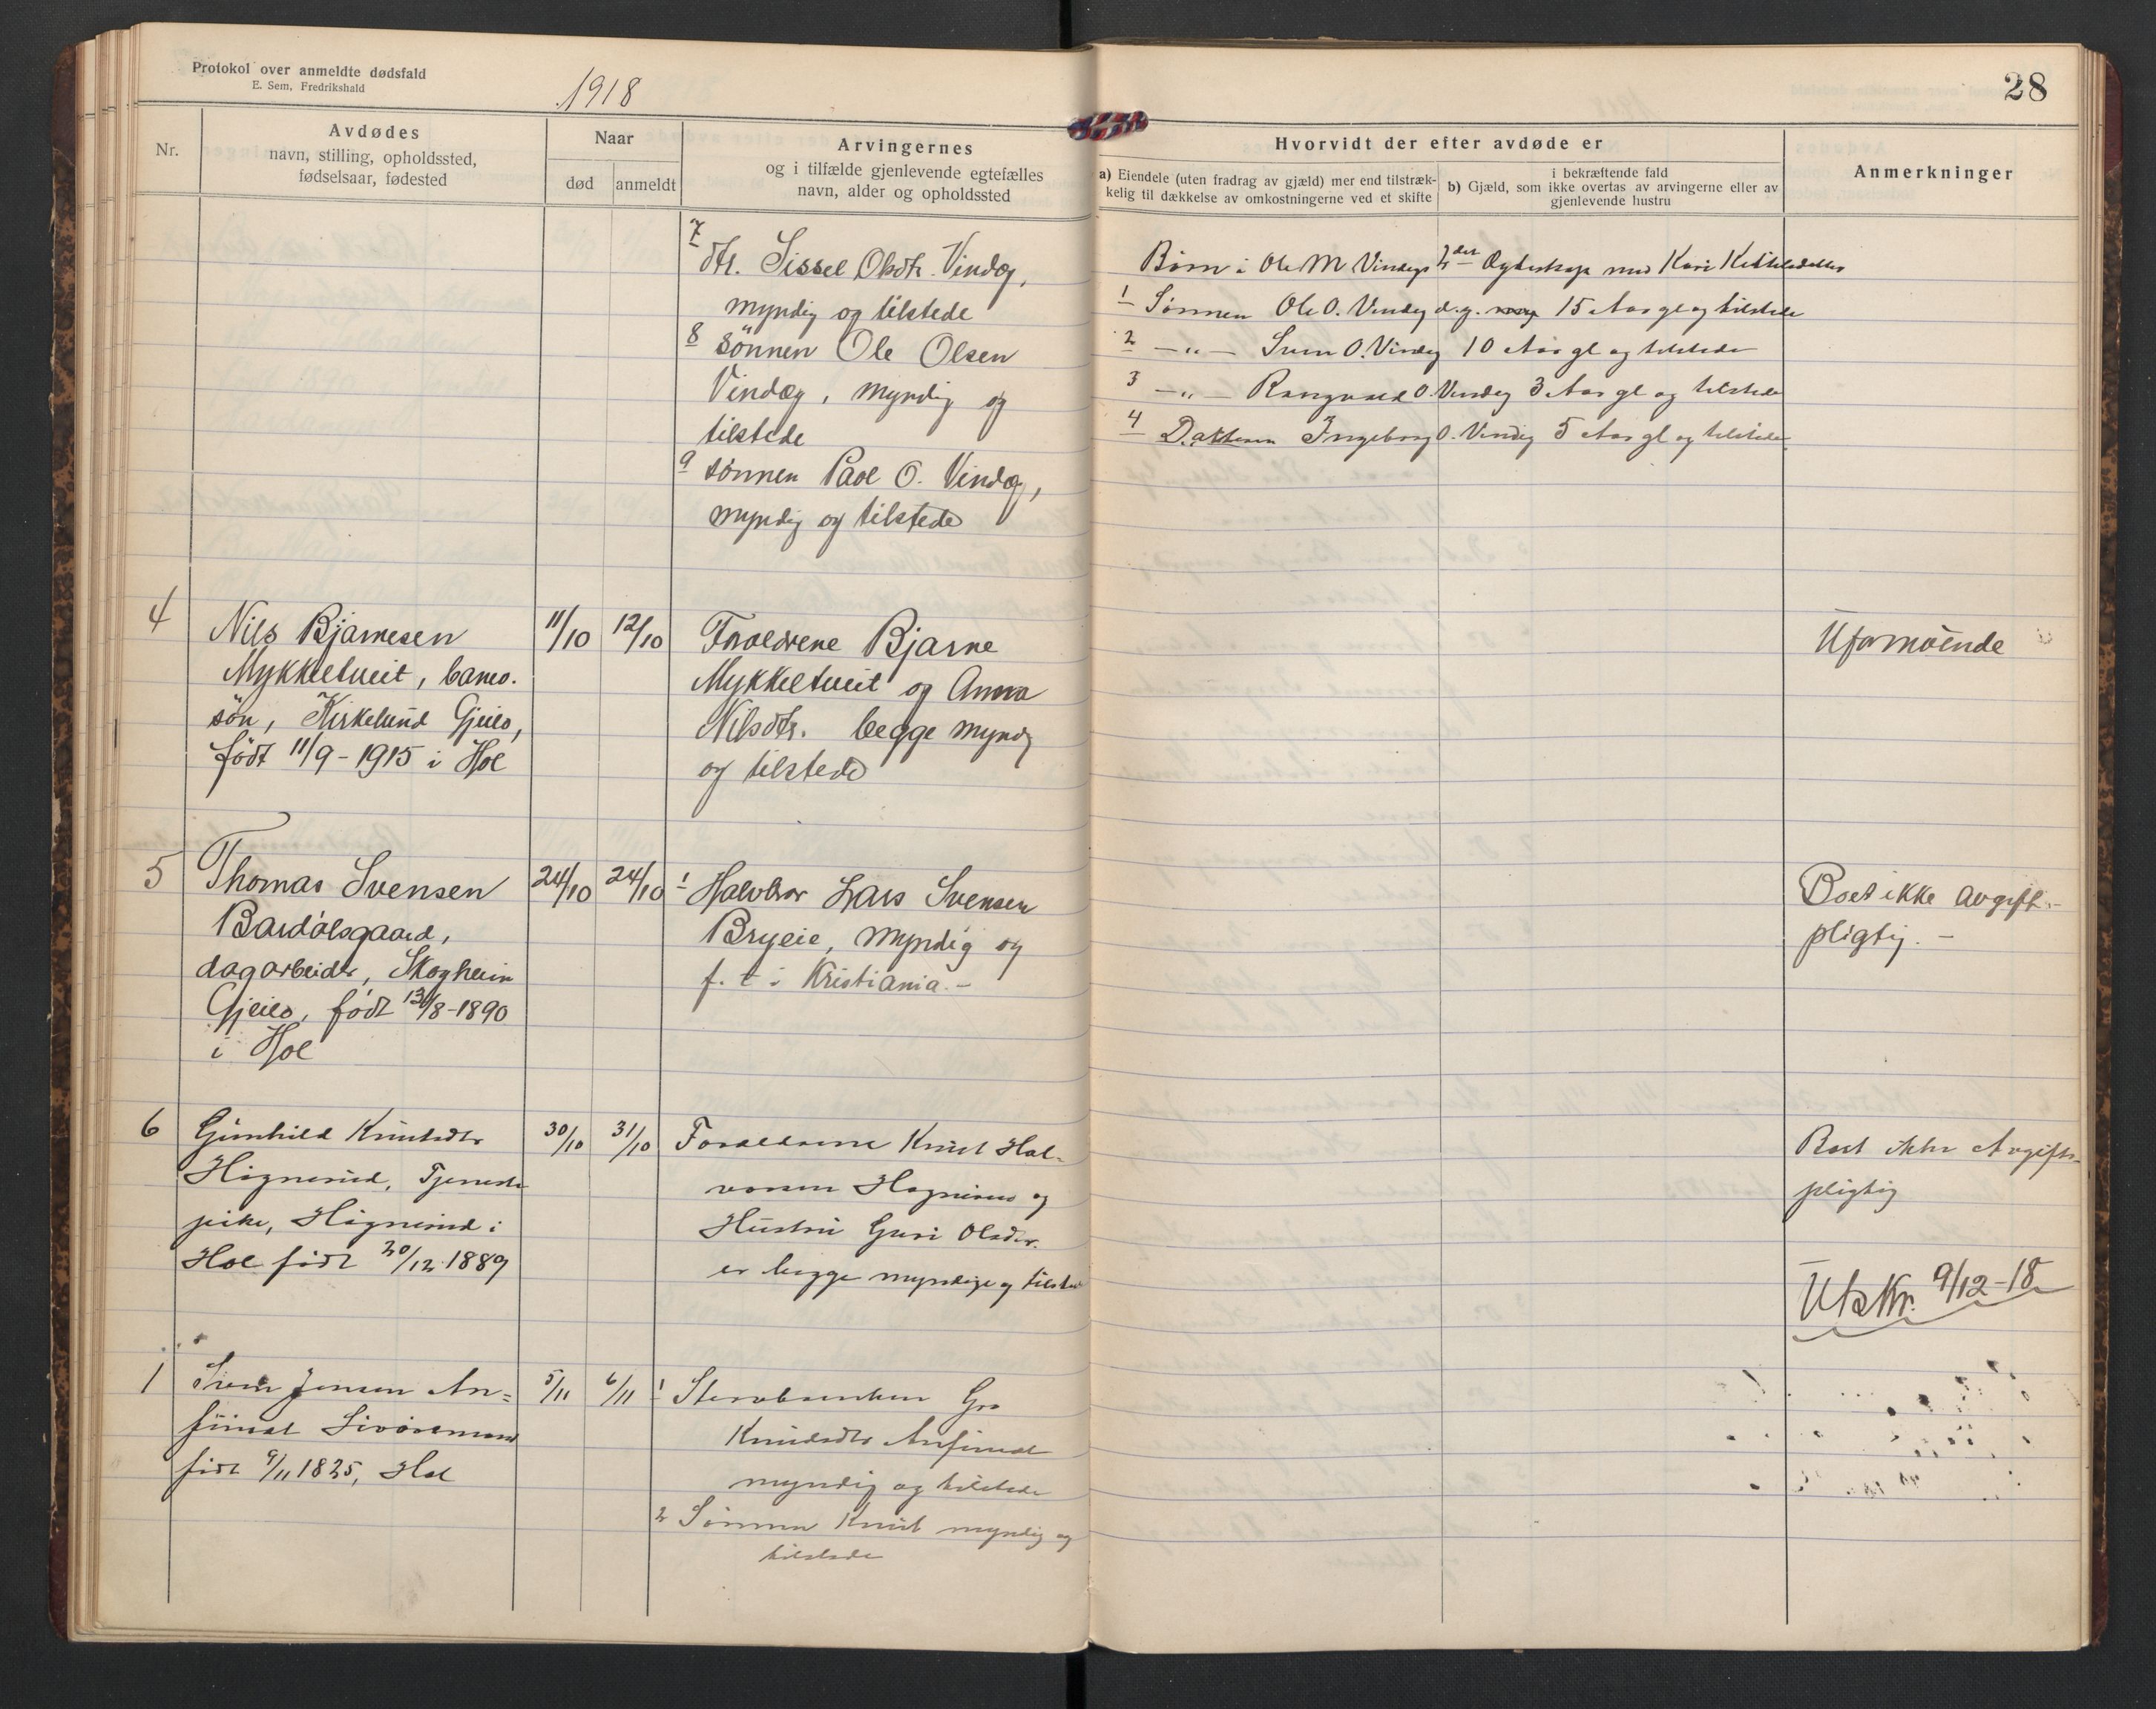 Protokol over anmeldte dødsfald
E. Sem, Fredrikshald
1918
Nr.
Avdødes
navn, stilling, opholdssted,
fødselsaar, fødested
Naar
død
anmeldt
Arvingernes
og i tilfælde gjenlevende egtefælles
navn, alder og opholdssted
7
dtr. Sissel Olsdtr. Vindeg,
myndig og tilstede
8 sönnen Ole Olsen
Vindeg, myndig og
tilstede
9 sönnen Paal O. Vindeg,
myndig og tilstede
4
Nils Bjarnesen
Mykkeltveit, barns.
sön, Kirkelund Gjeilo,
född 11/9-1915 i Hol
11/10
12/10
Forældrene Bjarne
Mykkeltveit og Anna
Nilsdtr. begge myndg
og tilstede
5
Thomas Svensen
Bardölsgaard,
dagarbeider, Skogheim
Gjeilo, född 13/8-1890
i Hol
24/10
24/10
1 Halvbror Lars Svensen
Bryeie, myndig og
f. t. i Kristiania.-
6
Gunhild Knutsdtr
Högnerud, Tjeneste
pike, Högnerud i
Hol född 20/12 1889
30/10
31/10
Forældrene Knut Hal-
vorsen Högnerud og
Hustru Guri Olsdtr.
er begge myndige og tilstede
1
Svein Jensen An=
finset Livöremand
född 9/11 1825, Hol
5/11
6/11
1 Stervboenken Gro
Knudsdtr Anfinset
myndig og tilstede
2 Sönnen Knut myndig og
tilstede
28
Hvorvidt der efter avdøde er
a) Eiendele (uten fradrag av gjæld) mer end tilstræk-
kelig til dækkelse av omkostningerne ved et skifte
i bekræftende fald
b) Gjæld, som ikke overtas av arvingerne eller av
gjenlevende hustru
Anmerkninger
Börn i Ole M Vindegs 2det Egteskap med Kari Kittilsdatter
1 Sönnen Ole O. Vindeg d.y. 15 Aar gl og tilstede
2 -"- Svein O. Vindeg 10 Aar gl og tilstede
3 -"- Rangvald O. Vindeg 3 Aar gl og tilstede
4 Datteren Ingeborg O. Vindeg 5 Aar gl og tilstede
Uformöende
Boet ikke avgifts-
pligtig.-
Boet ikke Avgifts-
pligtig
Utskr. 9/12-18